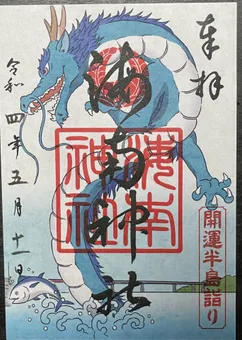 奉拝
海南神社
海南
神社
開運半島詣り
令和四年五月十一日